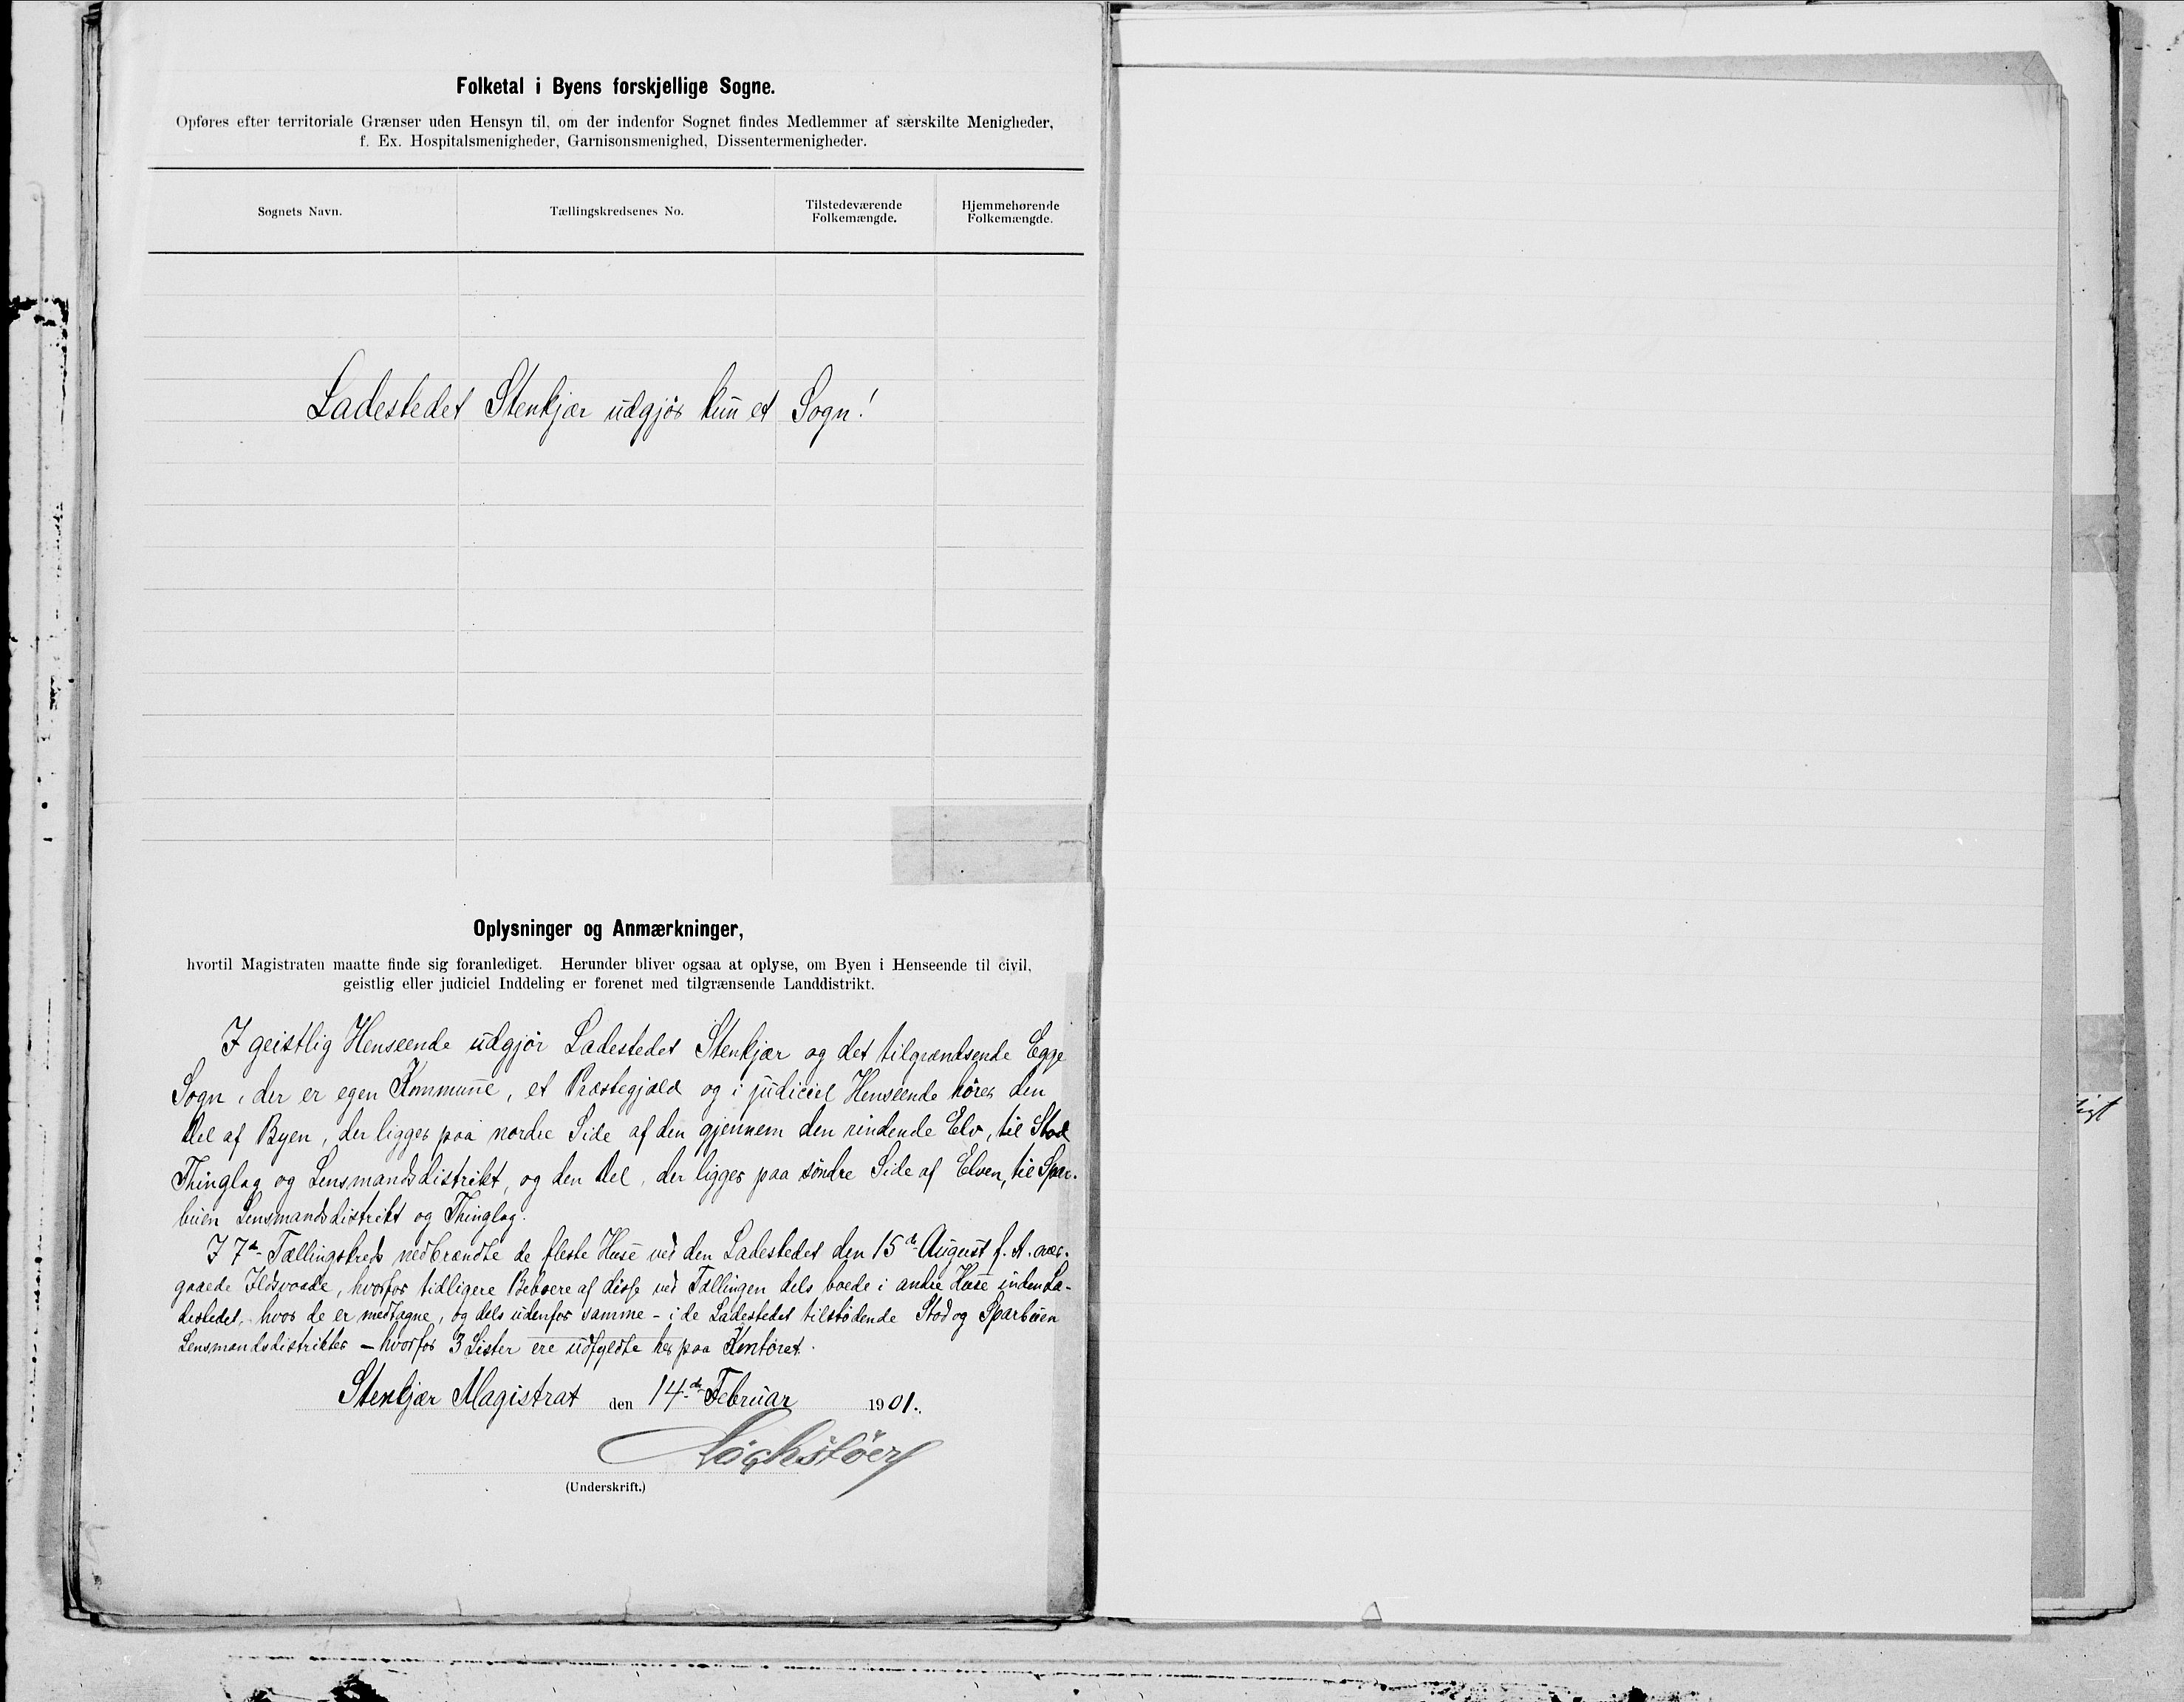 Folketal i Byens forskjellige Sogne.
Opføres efter territoriale Grænser uden Hensyn til, om der indenfor Sognet findes Medlemmer af særskilte Menigheder,
f. Ex. Hospitalsmenigheder, Garnisonsmenighed, Dissentermenigheder.
Sognets Navn.
Tællingskredsenes No.
Tilstedeværende
Folkemængde.
Hjemmehørende
Folkemængde.
Ladestedet Stenkjær udgjør kun et Sogn!
Oplysninger og Anmærkninger,
hvortil Magistraten maatte finde sig foranlediget. Herunder bliver ogsaa at oplyse, om Byen i Henseende til civil,
geistlig eller judiciel Inddeling er forenet med tilgrænsende Landdistrikt.
I geistlig Henseende udgjør Ladestedet Stenkjær og det tilgrændsende Egge
Sogn, der er egen Kommune, et Præstegjæld og i judiciel Henseende hører den
Del af Byen, der ligger paa nordre Side af den gjennem den rindende Elv, til Stod
Thinglag og Lensmandsdistrikt, og den Del, der ligger paa søndre Side af Elven, til Spar-
buen Lensmandsdistrikt og Thinglag.
I 7de Tællingskreds nedbrændte de fleste Huse ved den Ladestedet den 15de August f. A. over-
gaaede Ildsvaade, hvorfor tidligere Beboere af disse ved Tællingen dels boede i andre Huse inden La-
destedet, hvor de er medtagne, og dels udenfor samme - i de Ladestedet tilstødende Stod og Sparbuen
Lensmandsdistrikter - hvorfor 3 Lister ere udfyldte her paa Kontoret.
Stenkjær Magistrat den 14de Februar 1901.
(Underskrift.)